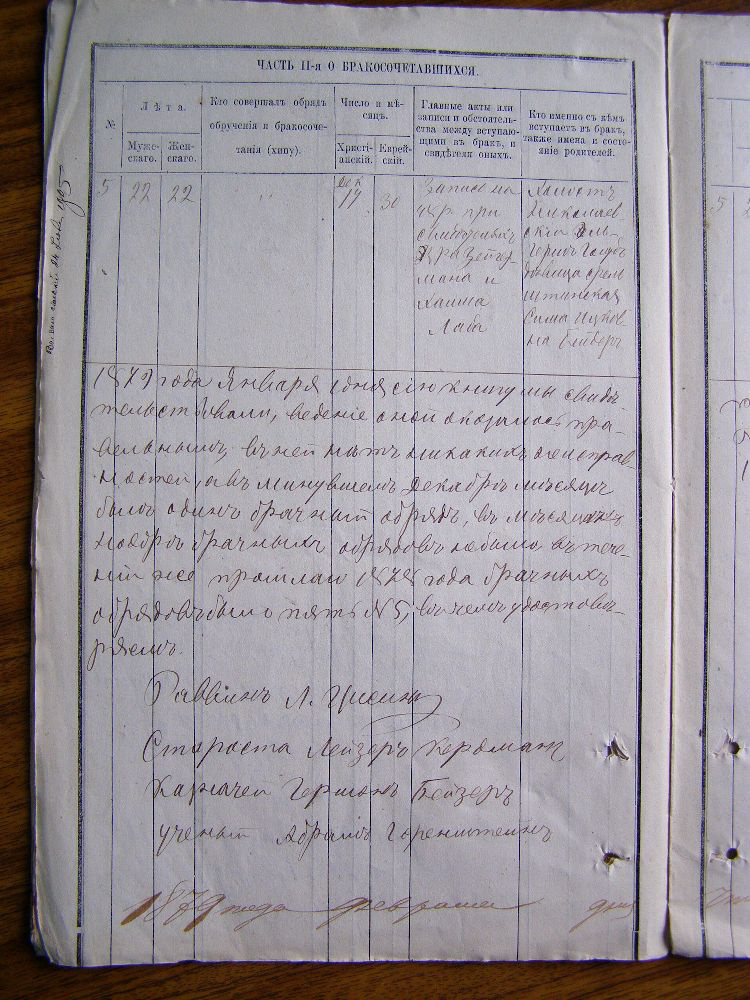 ЧАСТЬ II-я О БРАКОСОЧЕТАВШИХСЯ.
№
Лѣта.
Муже-
скаго.
Жен-
скаго.
Кто совершалъ обрядъ
обрученія и бракосоче-
танія (хипу).
Число и мѣ-
сяцъ.
Христі-
анскій.
Еврей-
скій.
Главные акты или
записи и обстоятель-
ства между вступаю-
щими въ бракъ, и
свидѣтели оныхъ.
Кто именно съ кѣмъ
вступаетъ въ бракъ,
также имена и состо-
яніе родителей.
5
22
22
" "
Дек
17
30
Запись на
при
мана и
Хаима
Лаба
Холостъ
Николаев-
скій
дѣвица
Сима Ицков-
на Гейберъ
1879 года Января 1 дня сію книгу мы свидѣ-
тельствовали, веденіе оной оказалось пра-
вельнымъ, въ ней нѣтъ никакихъ неисправ-
ностей, а въ минувшемъ Декабрѣ мѣсяцѣ
былъ одинъ брачный обрядъ, въ мѣсяцѣ
ноябрѣ брачныхъ обрядовъ небыло, въ тече-
ніи же прошлаго 1878 года брачныхъ
обрядовъ было пять №5, въ чемъ удостовѣ-
ряемъ.
Раввинъ Л. Цисинъ
Староста Лейзеръ Керсманъ
Казначей Германъ Бейзеръ
Ученый Абрамъ Горенштейнъ
1879 года февраля дня